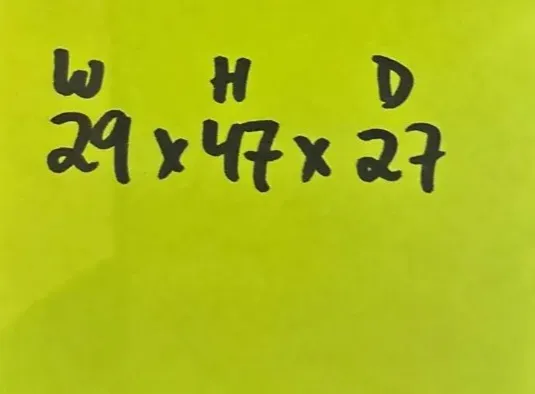 W H D
29 x 47 x 27